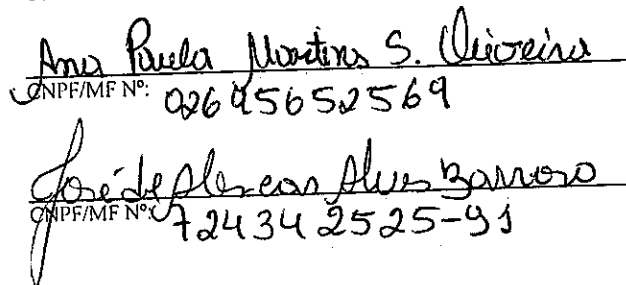 Ana Paula Martins S. Oliveira
CNPF/MF Nº: 02695652569
José de Alencar Alves Barroso
CNPF/MF Nº: 724342525-91